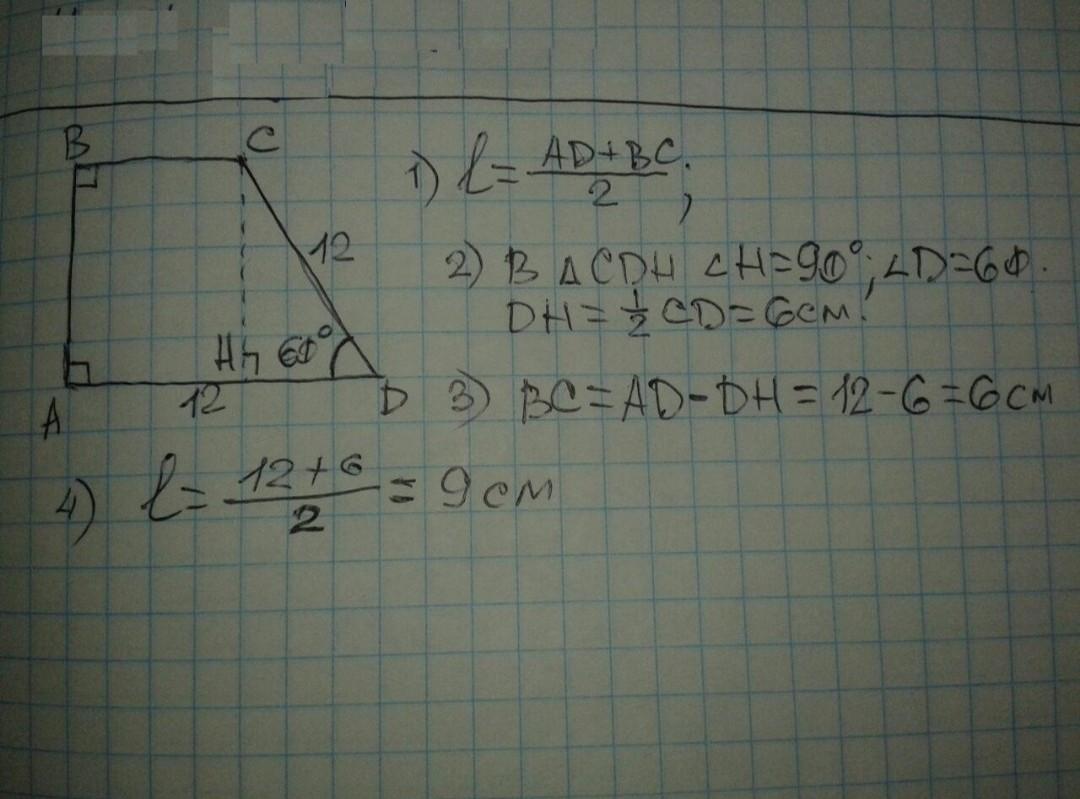 B C
1) ℓ = (AD + BC)/2 ;
12
2) В △CDH ∠H = 90°; ∠D = 60.
DH = 1/2 CD = 6 см.
H 60°
A 12 D
3) BC = AD - DH = 12 - 6 = 6 см
4) ℓ = (12 + 6)/2 = 9 см